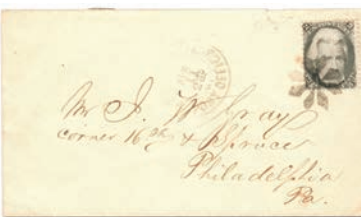 Mr J. W. Gray
corner 16th & Spruce
Philadelphia
Pa.